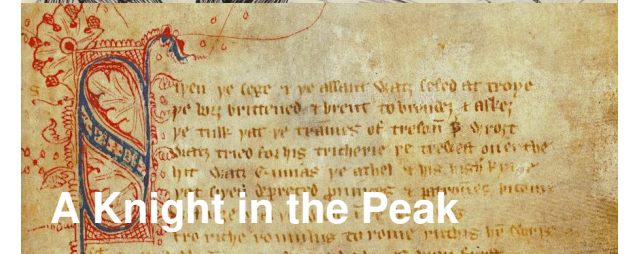 Siþen þe sege & þe assaut watz sesed at troye
þe borȝ brittened & brent to brondez & askez
þe tulk þat þe trammes of tresoun þer wroȝt
watz tried for his tricherie þe trewest on erthe
hit watz ennias þe athel & his highe kynde
þat siþen depreced prouinces & patrounes bicome
A Knight in the Peak
fro riche romulus to rome ricchis hym swyþe